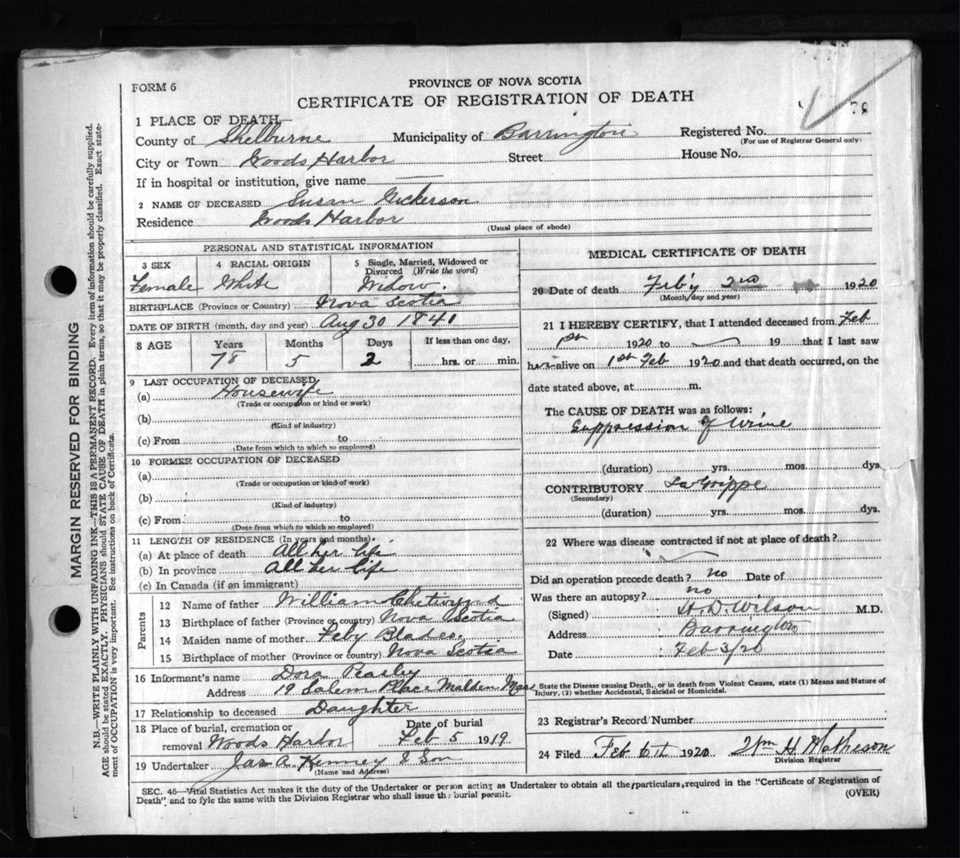 FORM 6
PROVINCE OF NOVA SCOTIA
CERTIFICATE OF REGISTRATION OF DEATH
78
1 PLACE OF DEATH
County of Shelburne Municipality of Barrington Registered No.
(For use of Registrar General only)
City or Town Woods Harbor Street House No.
If in hospital or institution, give name —
2 NAME OF DECEASED Susan Nickerson
Residence Woods Harbor
(Usual place of abode)
PERSONAL AND STATISTICAL INFORMATION
3 SEX 4 RACIAL ORIGIN 5 Single, Married, Widowed or Divorced (Write the word)
Female White Widow.
BIRTHPLACE (Province or Country) Nova Scotia
DATE OF BIRTH (month, day and year) Aug 30 1841
8 AGE Years Months Days If less than one day,
78 5 2 hrs. or min.
9 LAST OCCUPATION OF DECEASED
(a) Housewife
(Trade or occupation or kind or work)
(b)
(Kind of industry)
(c) From to
(Date from which to which so employed)
10 FORMER OCCUPATION OF DECEASED
(a)
(Trade or occupation or kind of work)
(b)
(Kind of industry)
(c) From to
(Date from which to which so employed)
11 LENGTH OF RESIDENCE (In years and months).
(a) At place of death All her life
(b) In province All her life
(c) In Canada (if an immigrant)
Parents
12 Name of father William Chetwynd
13 Birthplace of father (Province or country) Nova Scotia
14 Maiden name of mother Feby Blades.
15 Birthplace of mother (Province or country) Nova Scotia
16 Informant's name Dora
Address 19 Salem Place Malden Mass
17 Relationship to deceased Daughter
18 Place of burial, cremation or removal Woods Harbor Date of burial Feb 5 1919
19 Undertaker Jas A. Kenney & Son
(Name and Address)
MEDICAL CERTIFICATE OF DEATH
20 Date of death Feb'y 2nd 1920
(Month/day and year)
21 I HEREBY CERTIFY, that I attended deceased from Feb
1st 1920 to 19 that I last saw
h alive on 1st Feb 1920 and that death occurred, on the
date stated above, at m.
The CAUSE OF DEATH was as follows:
Suppression of Urine
(duration) yrs. mos. dys.
CONTRIBUTORY La Grippe
(Secondary)
(duration) yrs. mos. dys.
22 Where was disease contracted if not at place of death?
Did an operation precede death? no Date of
Was there an autopsy? no
(Signed) H.D. Wilson M.D.
Address Barrington
Date Feb 3/20
State the Disease causing Death, or in death from Violent Causes, state (1) Means and Nature of
Injury, (2) whether Accidental, Suicidal or Homicidal.
23 Registrar's Record Number
24 Filed Feb 6th 1920 Wm H. Matheson
Division Registrar
SEC. 46—Vital Statistics Act makes it the duty of the Undertaker or person acting as Undertaker to obtain all the particulars, required in the "Certificate of Registration of
Death" and to fyle the same with the Division Registrar who shall issue the burial permit.
(OVER)
MARGIN RESERVED FOR BINDING
N.B.—WRITE PLAINLY WITH UNFADING INK—THIS IS A PERMANENT RECORD. Every item of information should be carefully supplied.
AGE should be stated EXACTLY. PHYSICIANS should STATE CAUSE OF DEATH in plain terms, so that it may be properly classified. Exact state-
ment of OCCUPATION is very important. See instructions on back of Certificate.